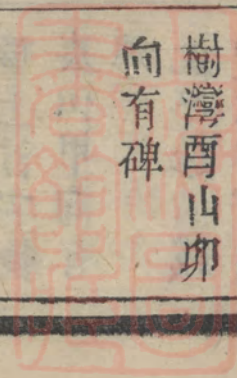 樹灣酉山卯
向有碑